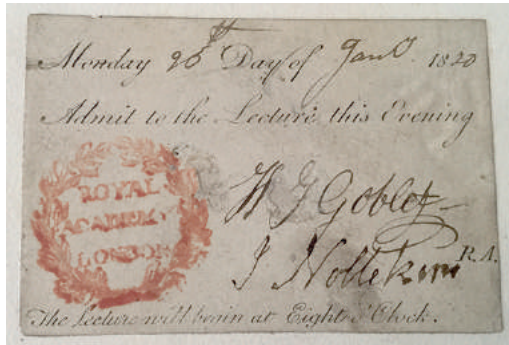 Monday 26th Day of Jany. 1820
Admit to the Lecture this Evening
ROYAL
ACADEMY
LONDON
Goblet
J Nollekens R.A.
The Lecture will begin at Eight o'Clock.